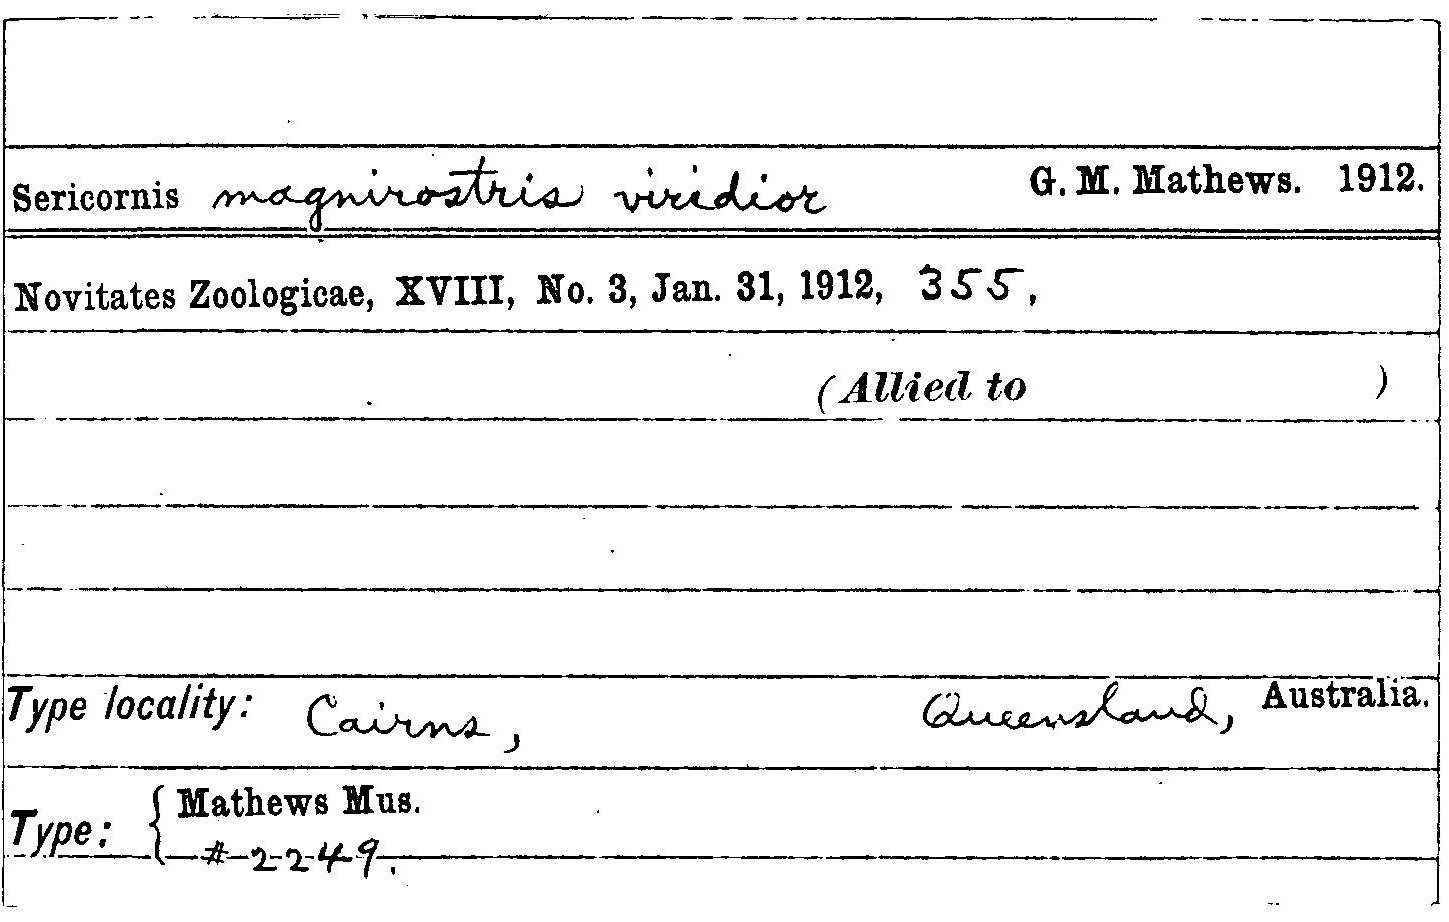 Sericornis magnirostris viridior G. M. Mathews. 1912.
Novitates Zoologicae, XVIII, No. 3, Jan. 31, 1912, 355,
(Allied to )
Type locality: Cairns, Queensland, Australia.
Type: { Mathews Mus.
#2249.